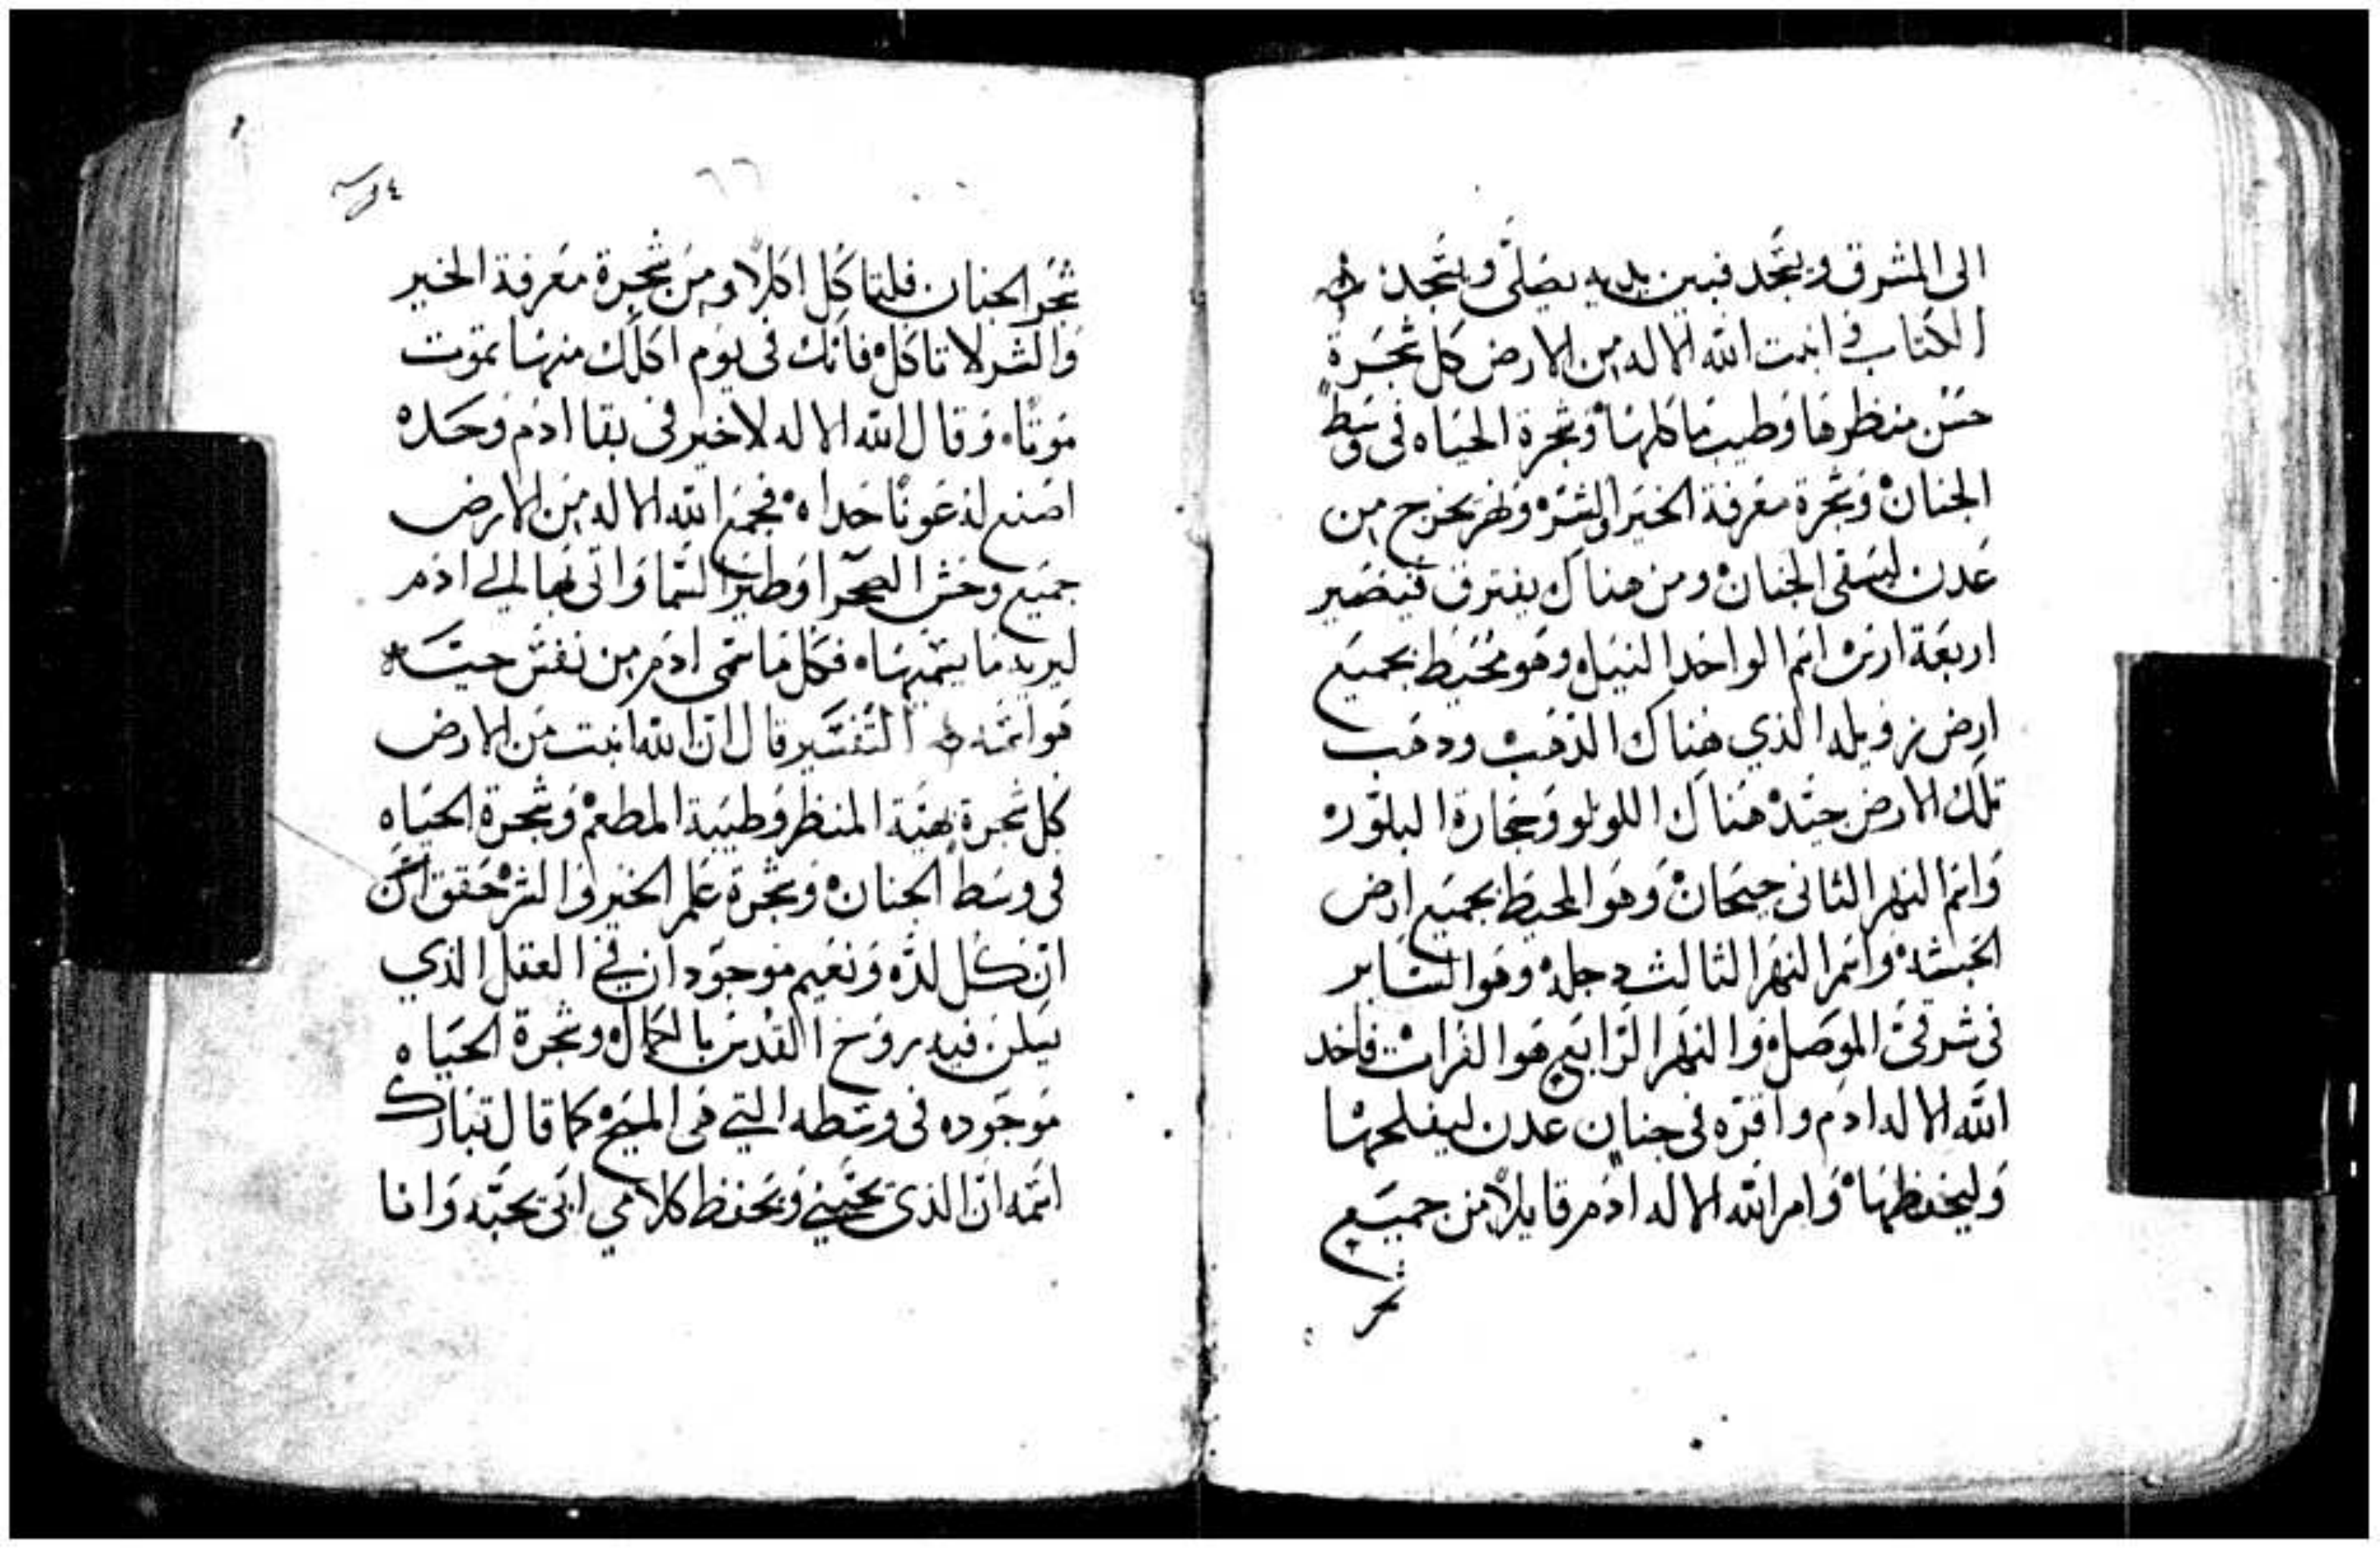 الى المشرق ويسجد فبين يديه يصلى ويسجد
الكتاب فانبت الله الاله من الارض كل شجرة
حسن منظرها وطيب ماكلها وشجرة الحياه فى وسط
الجنان وشجرة معرفة الخير والشر ونهر يخرج من
عدن ليسقى الجنان ومن هناك يفترق فيصير
اربعة ارس اسم الواحد النيل وهو محيط بجميع
ارض زويله الذي هناك الذهب ودهب
تلك الارض جيد هناك اللولو وحجارة البلور
واسم النهر الثانى جيحان وهو المحيط بجميع ارض
الحبشه واسم النهر الثالث دجله وهو الساير
فى شرقى الموصل والنهر الرابع هو الفرات فاخد
الله الاله ادم واقره فى جنان عدن ليفلحها
وليحفظها وامر الله الاله ادم قايلا من جميع
شجر
شجر الجنان فلتاكل اكلا ومن شجرة معرفة الخير
والشر لا تاكل فانك فى يوم اكلك منها تموت
موتا وقال الله الاله لا خير فى بقا ادم وحده
اصنع له عونا حداه فجمع الله الاله من الارض
جميع وحش الصحرا وطير السما واتى بها الى ادم
ليريه ما يسميها فكل ما سمى ادم من نفس حيه
هو اسمه التفسير قال ان الله انبت من الارض
كل شجرة بهية المنظر وطيبة المطعم وشجرة الحياه
فى وسط الجنان وشجرة علم الخير والشر حقق
ان كل لذه ونعيم موجودان في العقل الذي
يسكن فيه روح القدس بالكمال وشجرة الحياه
موجوده فى وسطه التي هى المسيح كما قال تبارك
اسمه ان الذى يحبني ويحفظ كلامي ابى يحبه وانا